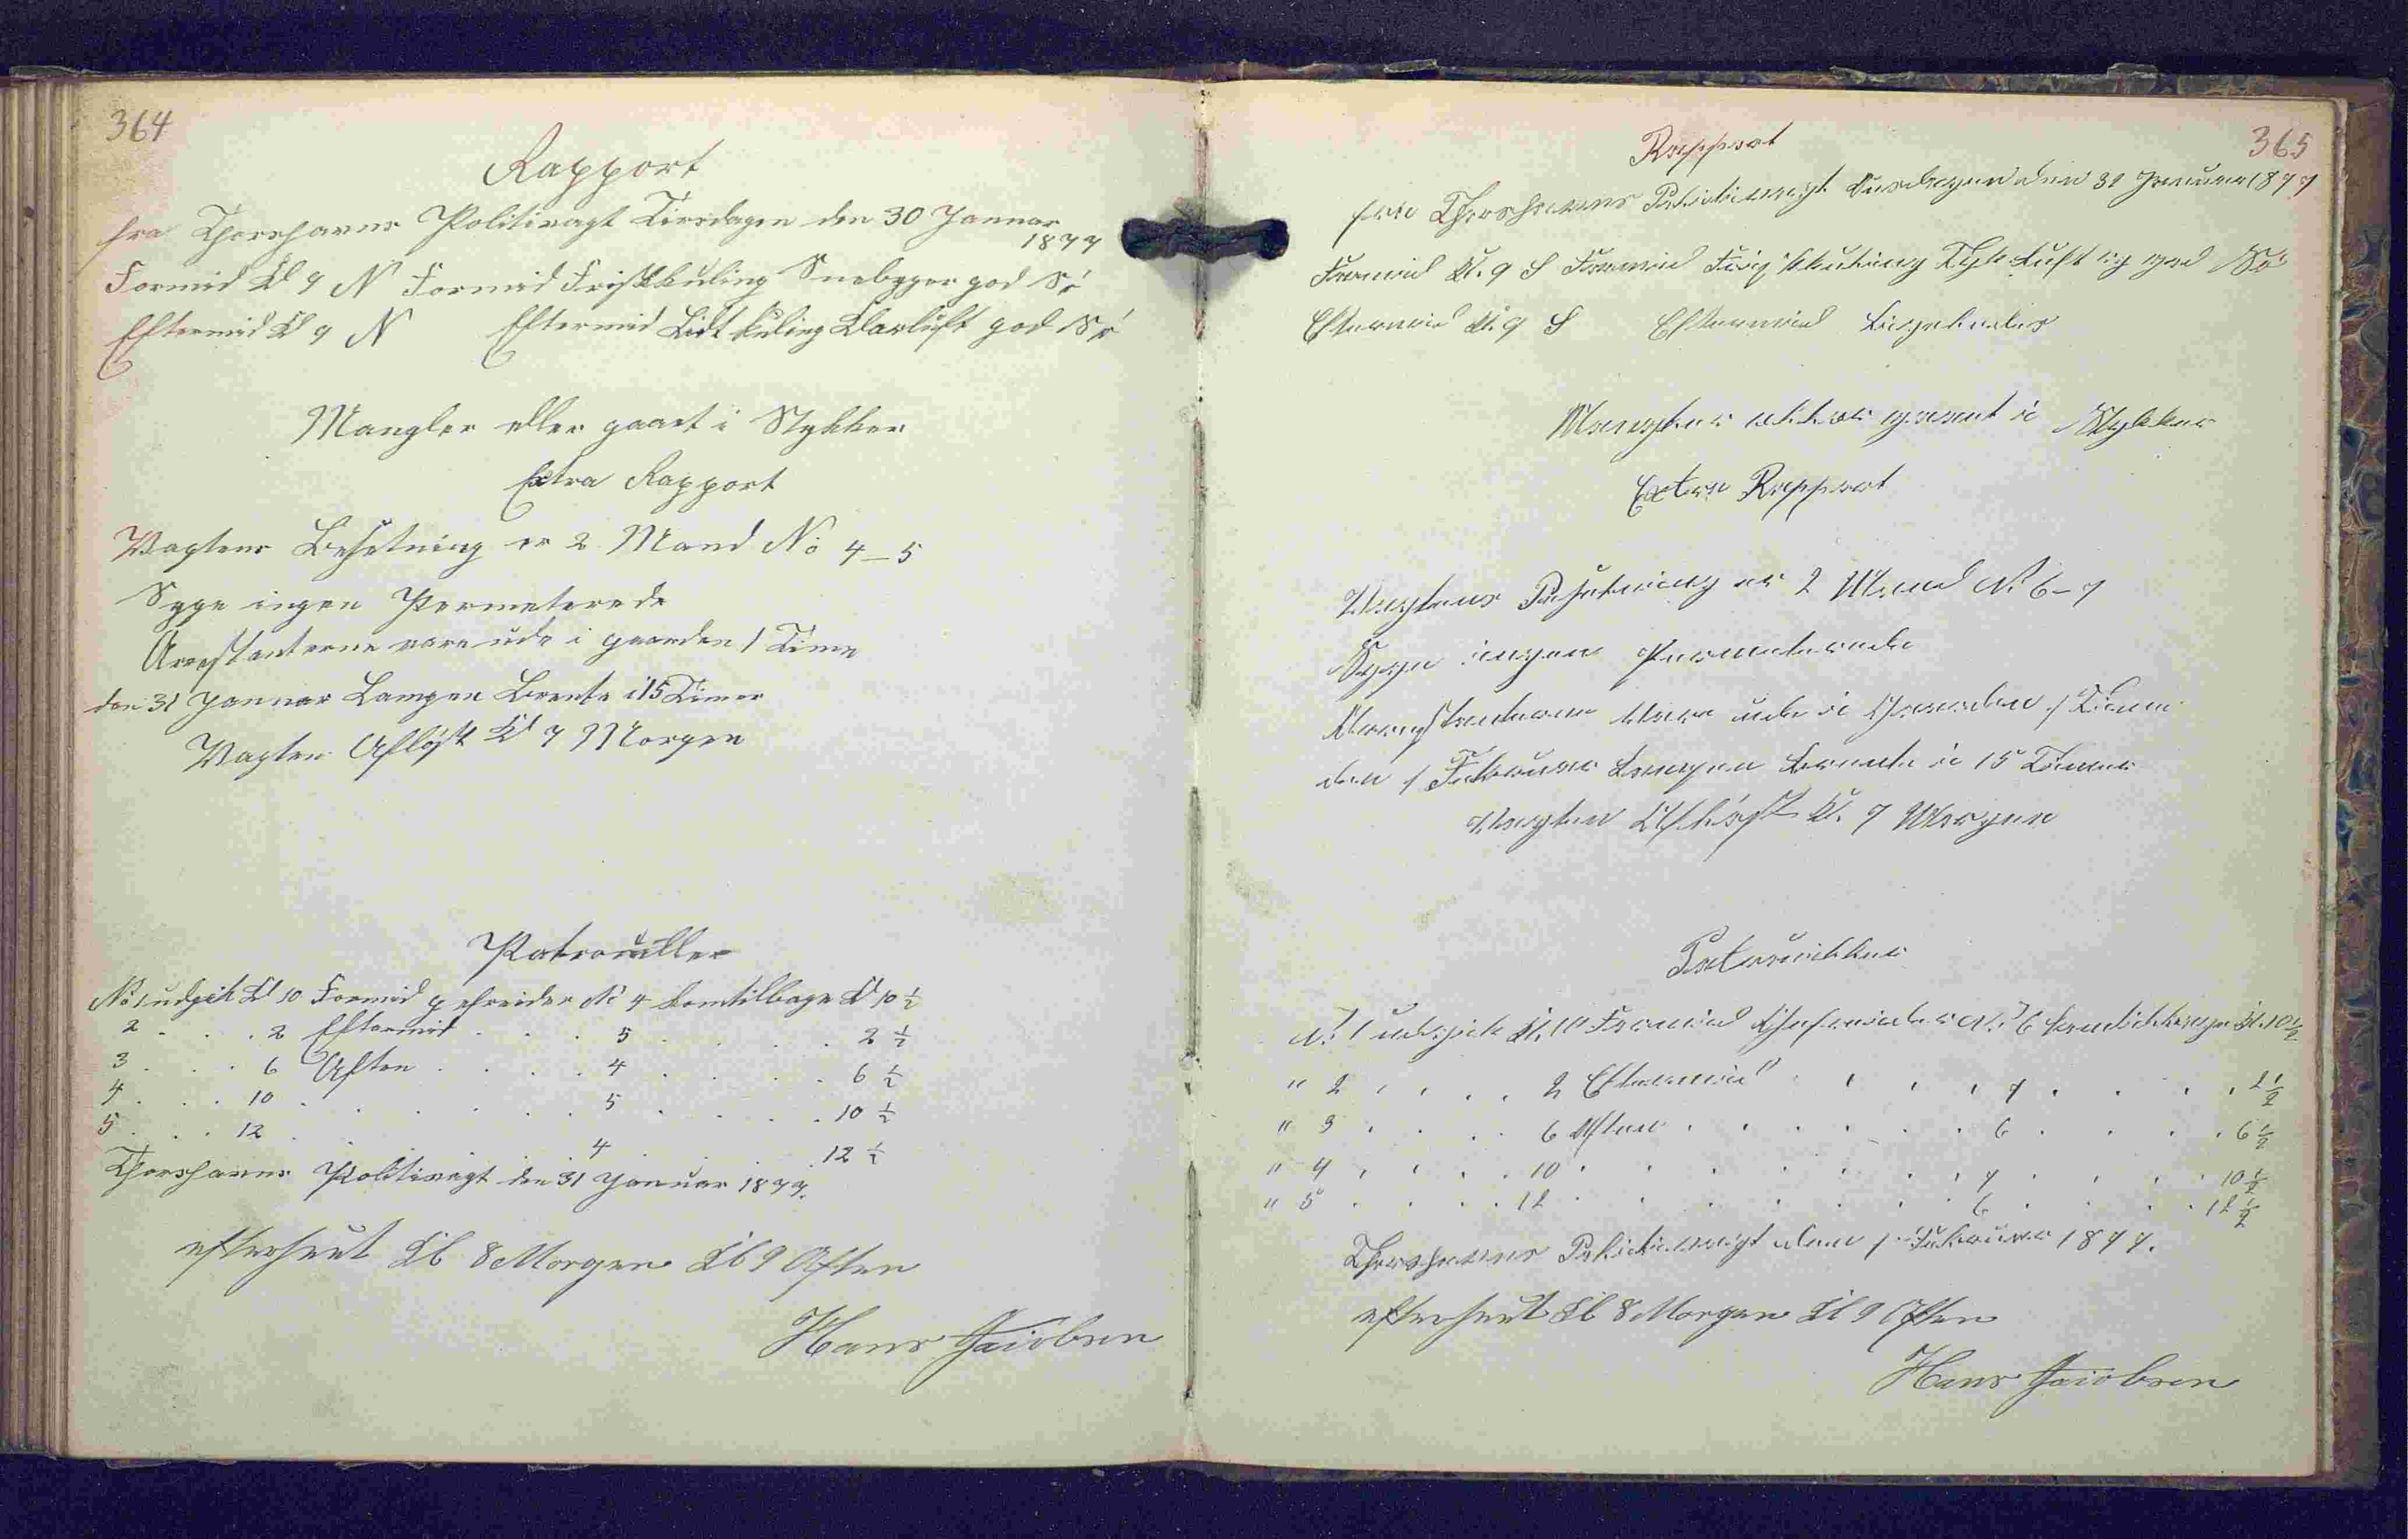 364
Rapport
fra Thorshavns Politivagt Tirsdagen den 30 Januar
1877
Formid Kl 9 N Formid Friskkuling Snebyger god Sö
Eftermid Kl 9 N Eftermid Lidt kuling Klarluft god Sö
Mangler eller gaaet i Stykker
Extra Rapport
Vagtens Besetning er 2 Mand No 4-5
Syge ingen Permeterede
Arrestanterne vare ude i gaarden 1 Time
den 31 Januar Lampen Brente i 15 Timer
Vagten Aflöst Kl 9 Morgen
Patrouiller
No 1 udgik Kl 10 Formid gefreider No 4 komtilbage Kl 10 1/2
2 . . . 2 Eftermid . . . 5 . . . . 2 1/2
3 . . . 6 Aften . . . . 4 . . . . 6 1/2
4 . . . 10 . . . . . . 5 . . . . 10 1/2
5 . . . 12 . . . . . . 4 . . . . 12 1/2
Thorshavns Politivagt den 31 Januar 1877.
efterseet Kl 8 Morgen Kl 9 Aften
Hans Jacobsen
365
Rapport
fra Thorshavns Politivagt Onsdagen den 31 Januar 1877
Formid Kl. 9 S Formid Friskkuling Tyk Luft og god Sö
Eftermid Kl. 9 S Eftermid Ligeledes
Mangler eller gaaet i Stykker
Extra Rapport
Vagtens Besetning er 2 Mand No 6-7
Syge ingen Permeterede
Arrestanterne Vare ude i Gaarden 1 Time
den 1 Februar Lampen brente i 15 Timer
Vagten Aflöst Kl. 9 Morgen
Patrouiller
No 1 udgik Kl. 10 Formid Gefreider No 6 komtilbage Kl. 10 1/2
" 2 . . . . 2 Eftermid . . . . 7 . . . . 2 1/2
" 3 . . . . 6 Aften . . . . . . 6 . . . . 6 1/2
" 4 . . . . 10 . . . . . . . 7 . . . . 10 1/2
" 5 . . . . 12 . . . . . . . 6 . . . . 12 1/2
Thorshavns Politivagt den 1 Februar 1877.
efterseet Kl 8 Morgen Kl 9 Aften
Hans Jacobsen